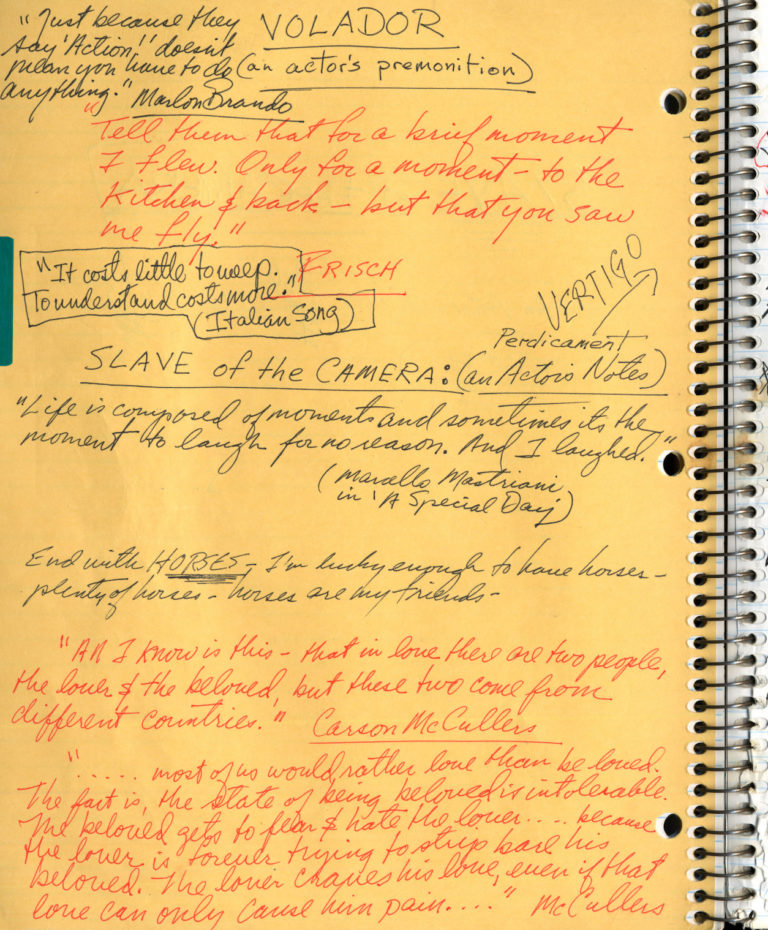 "Just because they
say 'Action!' doesn't
mean you have to do
anything." Marlon Brando
VOLADOR
(an actor's premonition)
"Tell them that for a brief moment
I flew. Only for a moment - to the
Kitchen & back - but that you saw
me fly."
FRISCH
"It costs little to weep.
To understand costs more."
(Italian Song)
VERTIGO
Perdicament
SLAVE of the CAMERA: (an Actor's Notes)
"Life is composed of moments and sometimes its the
moment to laugh for no reason. And I laughed."
(Marcello Mastriani
in 'A Special Day')
End with HORSES - I'm lucky enough to have horses -
plenty of horses - horses are my friends -
"All I know is this - that in love there are two people,
the lover & the beloved, but these two come from
different countries." Carson McCullers
"..... most of us would rather love than be loved.
The fact is, the state of being beloved is intolerable.
The beloved gets to fear & hate the lover .... because
the lover is forever trying to strip bare his
beloved. The lover craves his love, even if that
love can only cause him pain...." McCullers